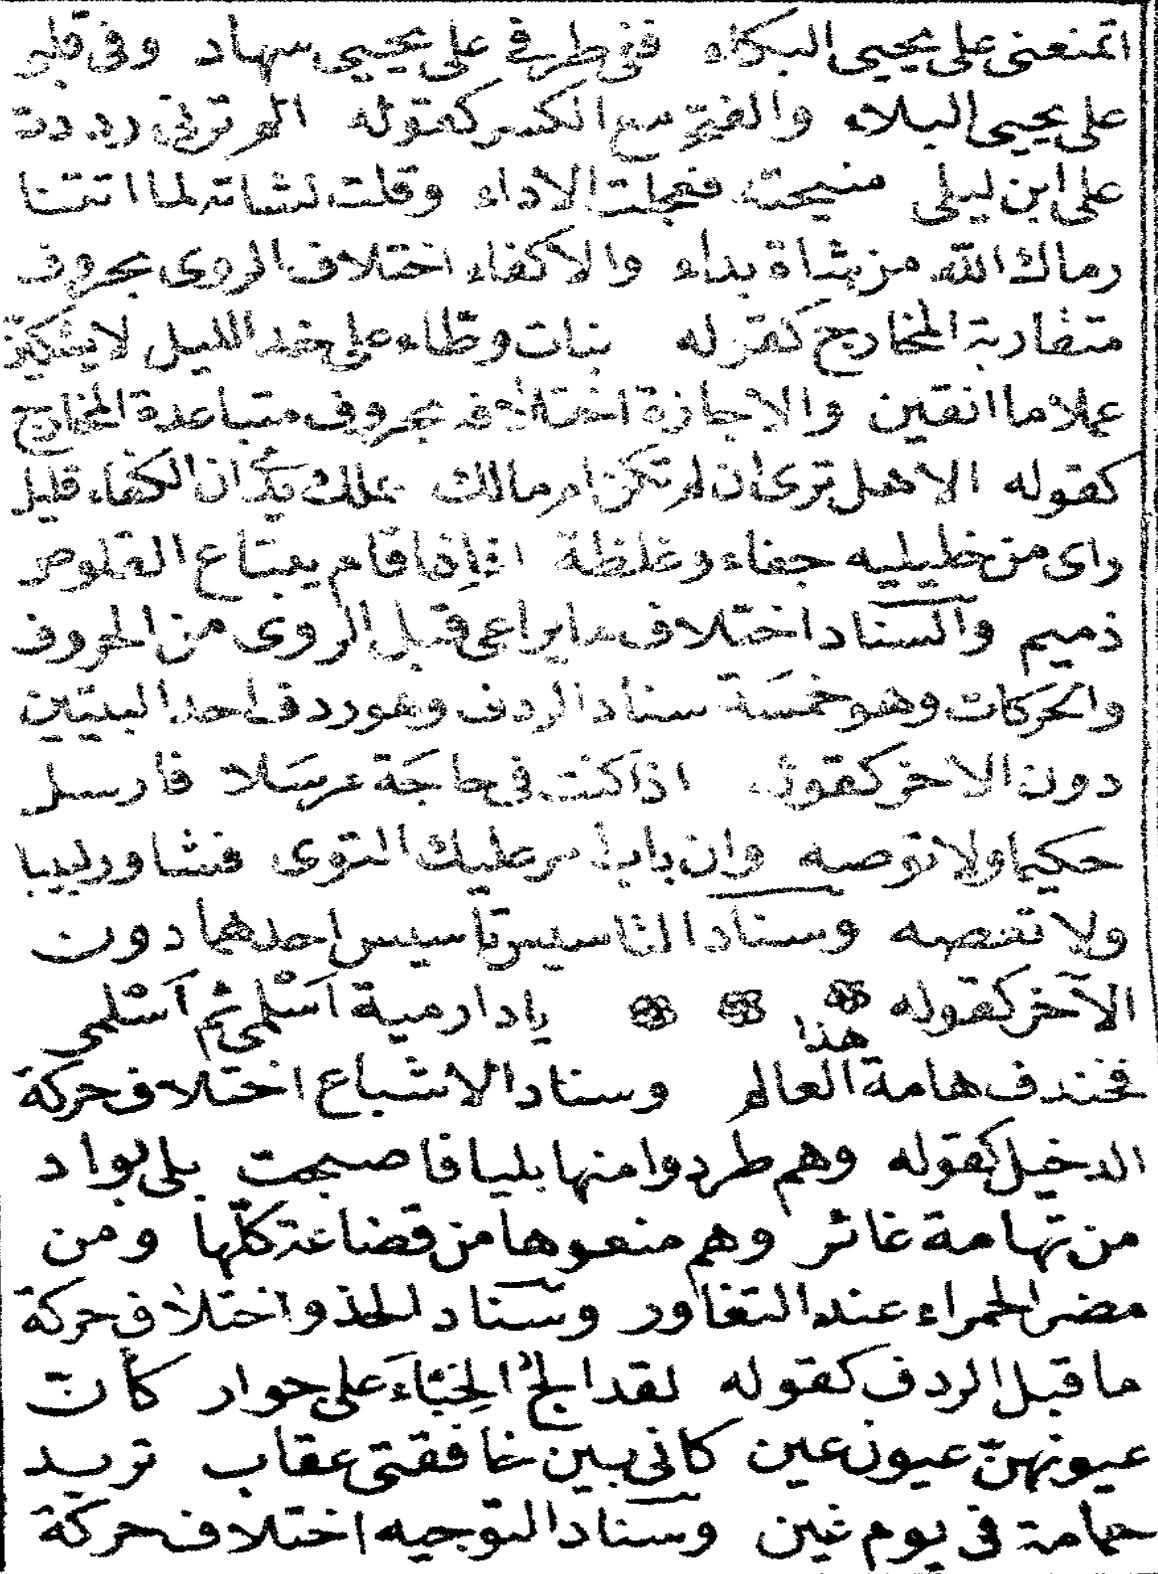 اتمنعنى على يحيى البكاء ففى طرفى على يحيى سهاد وفى قلبى
على يحيى البلاء والفتح مع الكسر كقوله الم ترنى رددت
على ابن ليلى منيحته فعجلت الاداء وقلت لشاته لما اتتنا
رماك الله من شاة بداء والاكفاء اختلاف الروى بحروف
متقاربة المخارج كقوله بنات وطاء على خد الليل لا يشكين
عملا ما انقين والاجازة اختلافه بحروف متباعدة المخارج
كقوله الا هل ترى ان لم تكن ام مالك بملك يدى ان الكفاء قليل
راى من خليليه جفاء وغلظة اذا قام يبتاع القلوص
ذميم والسناد اختلاف ما يراعى قبل الروى من الحروف
والحركات وهو خمسة سناد الردف وهو ردف احد البيتين
دون الاخر كقوله اذا كنت فى حاجة مرسلا فارسل
حكيما ولا توصه وان باب امر عليك التوى فشاور لبيبا
ولا تعصه وسناد التاسيس تاسيس احدهما دون
الآخر كقوله يا دار مية اسلمى ثم اسلمى
فخندف هامة هذا العالم وسناد الاشباع اختلاف حركة
الدخيل كقوله وهم طردوا منها بليا فاصبحت بلى بواد
من تهامة غائر وهم منعوها من قضاعة كلها ومن
مضر الحمراء عند التغاور وسناد الحذو اختلاف حركة
ما قبل الردف كقوله لقد الج الخباء على جوار كأن
عيونهن عيون عين كانى بين خافقتى عقاب تريد
حمامة فى يوم غين وسناد التوجيه اختلاف حركة